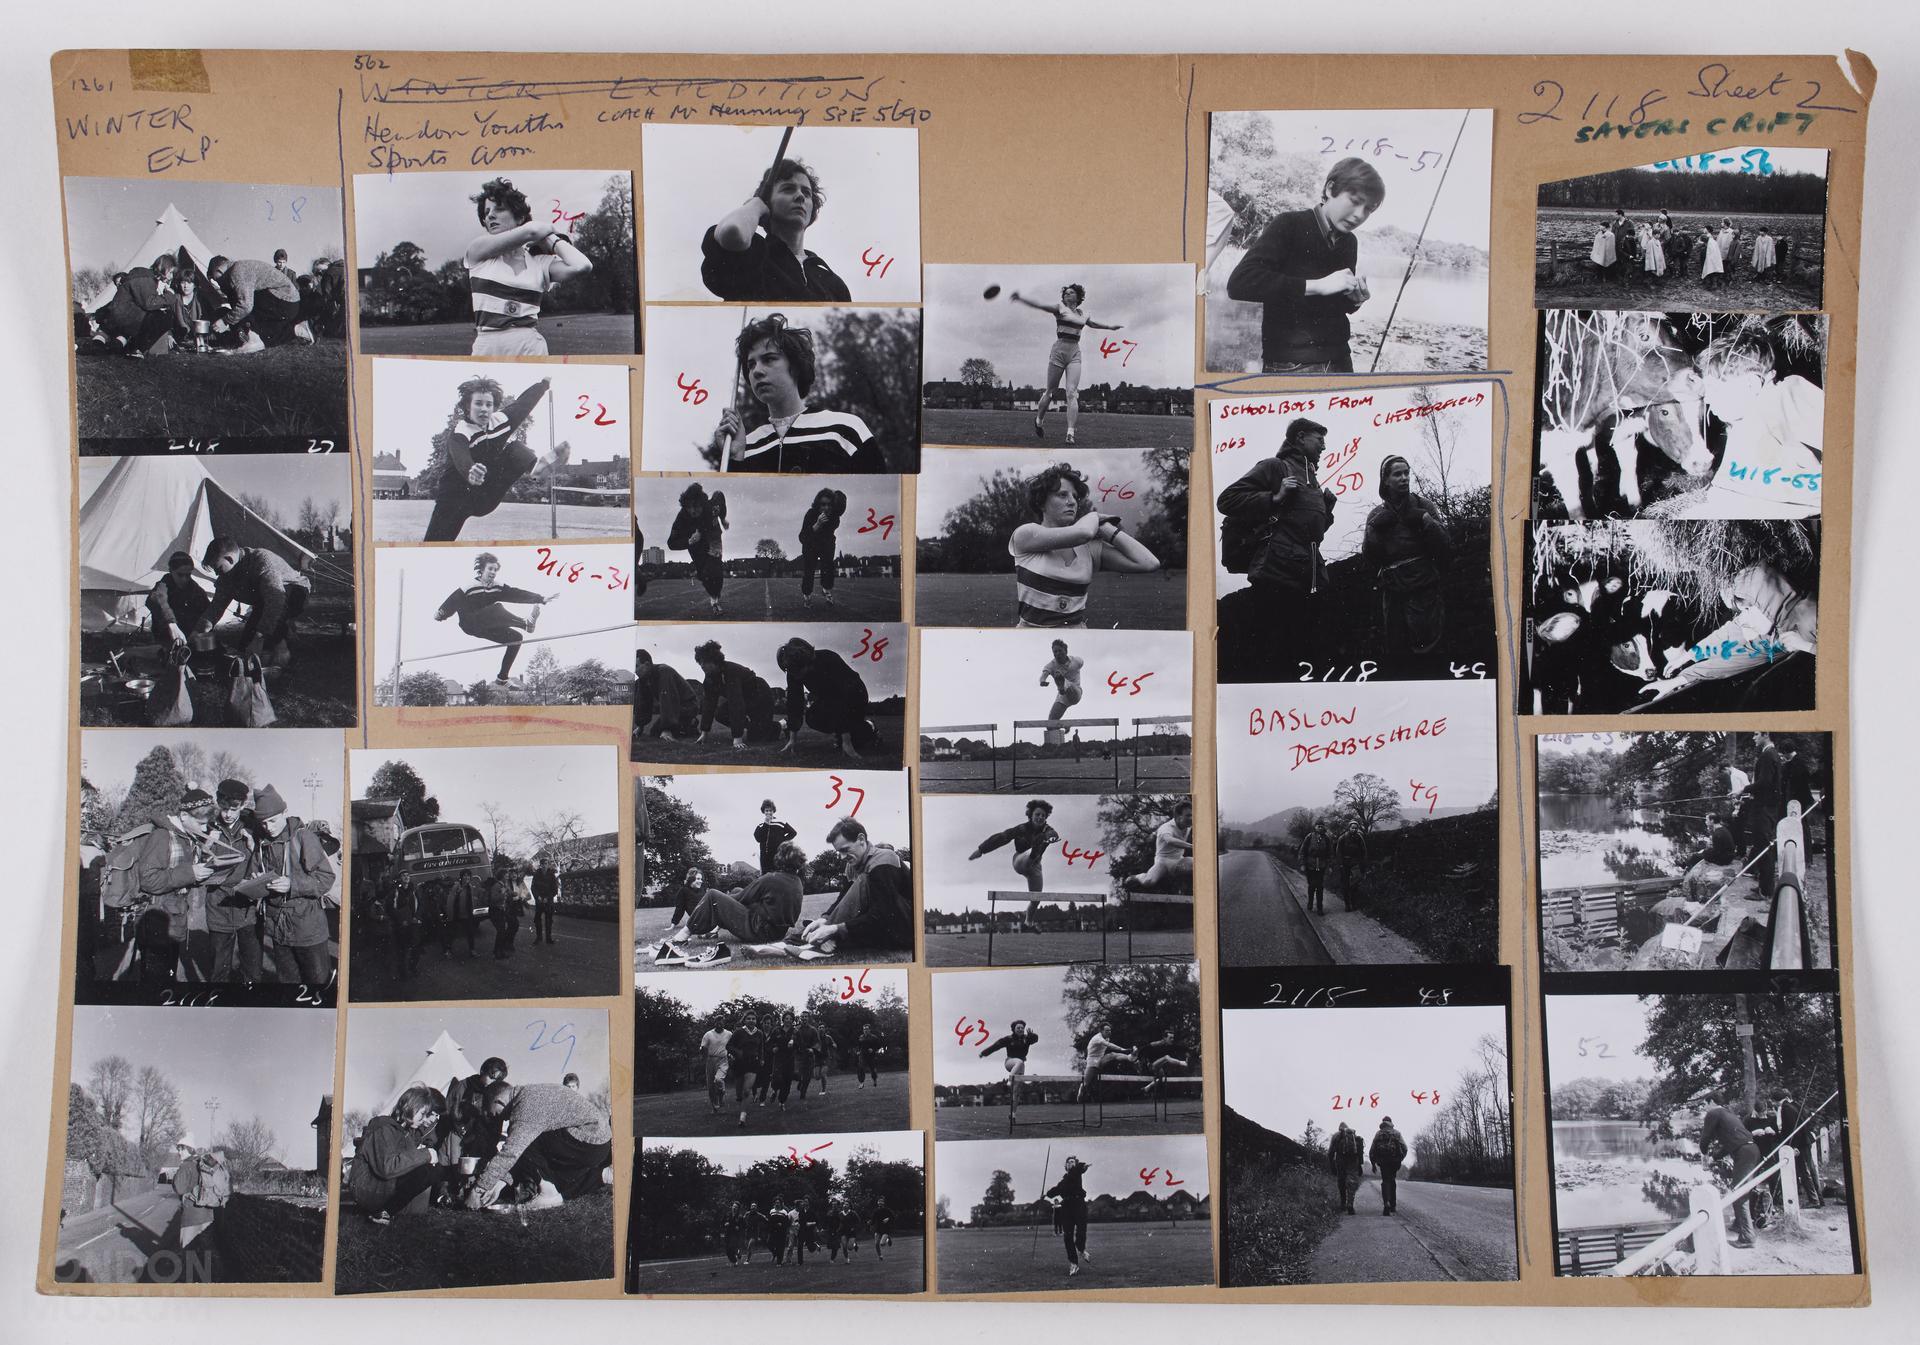 1261
WINTER
EXP.
562
WINTER EXPEDITION
Hendon Youths
Sports Assn.
COACH Mr Henning SPE 5690
2118 Sheet 2
SAYERS CROFT
28
2118 27
2118 25
29
34
32
2118-31
41
40
39
38
37
36
35
47
46
45
44
43
42
2118-51
SCHOOLBOYS FROM
CHESTERFIELD
1063
2118/50
2118 49
BASLOW
DERBYSHIRE
49
2118 48
2118 48
2118-56
2118-55
2118-54
2118-53
52
LONDON
MUSEUM